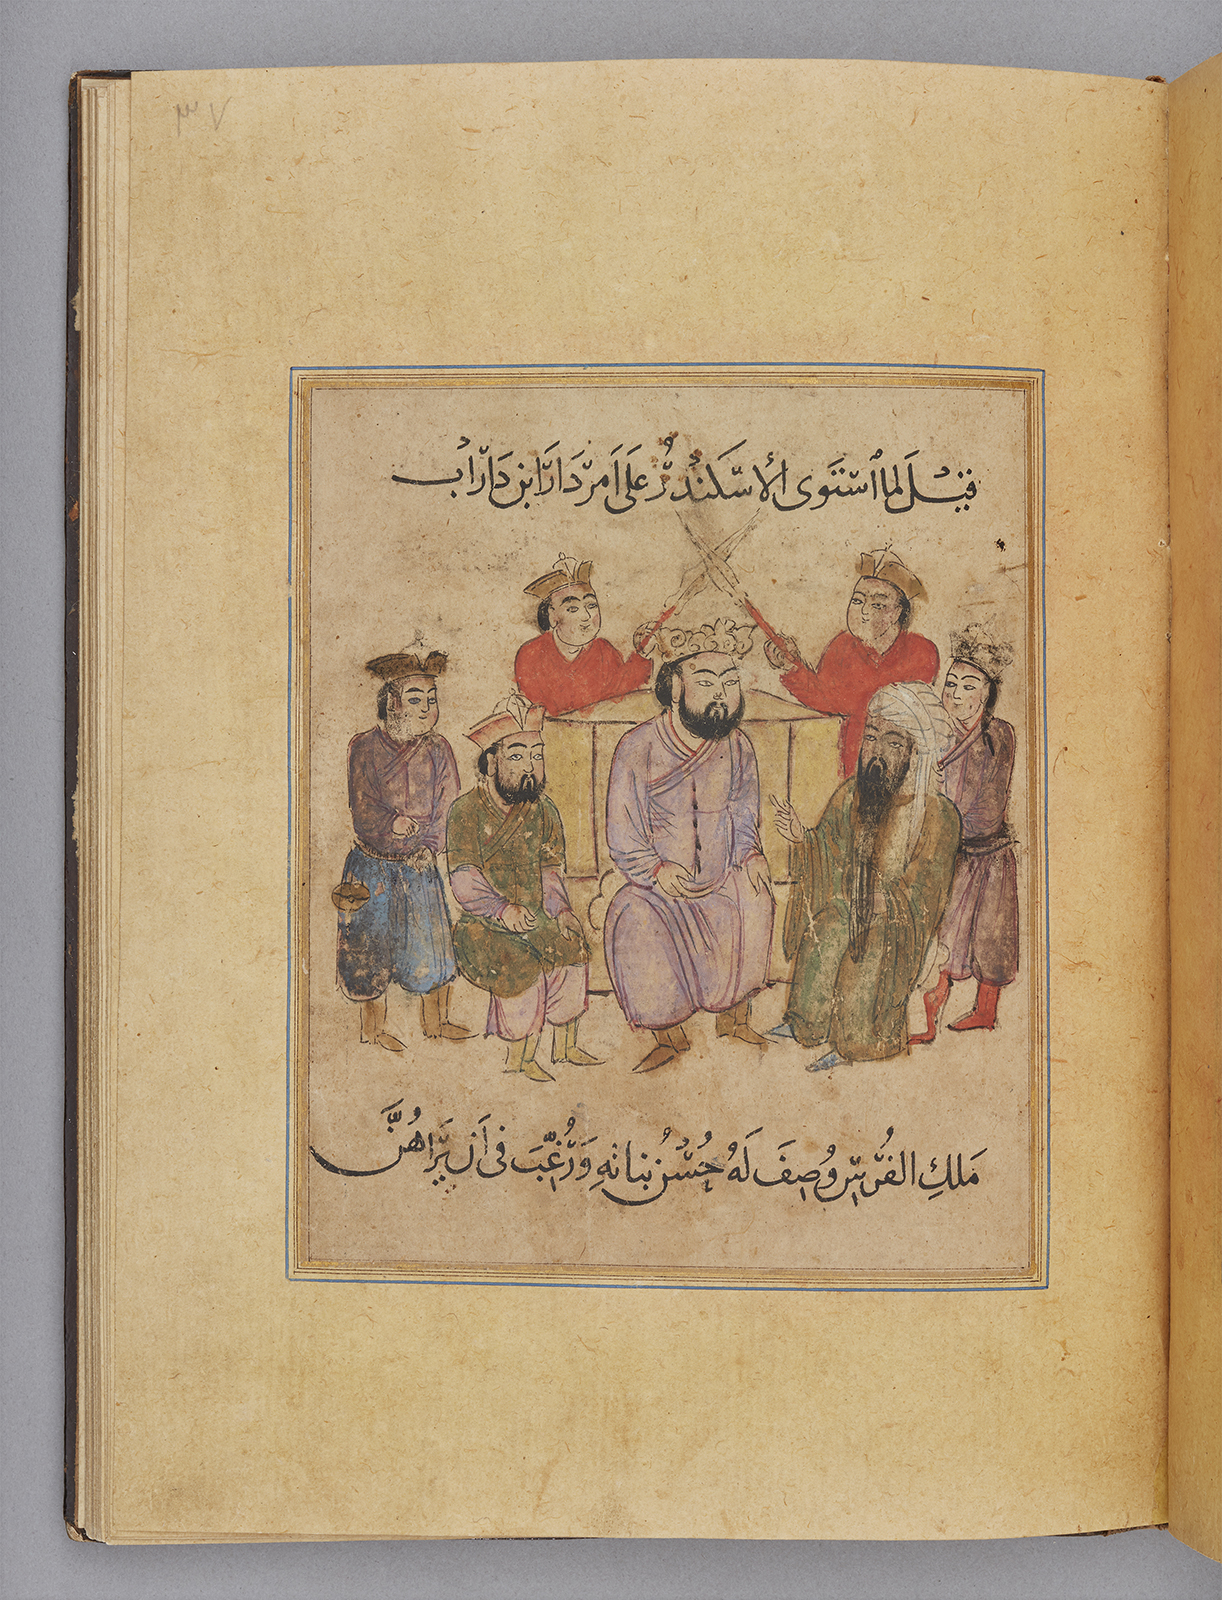 ٣٧
قيْلَ لما اسْتَوَى الأسكَندَرُ عَلَى اَمرِ دَارَا ابن دَارَاب
مَلكِ الفُرْسِ وُصِفَ لَهُ حُسْنُ بناتهِ وَرُغِّبَ فى اَن يَرَاهُنَّ